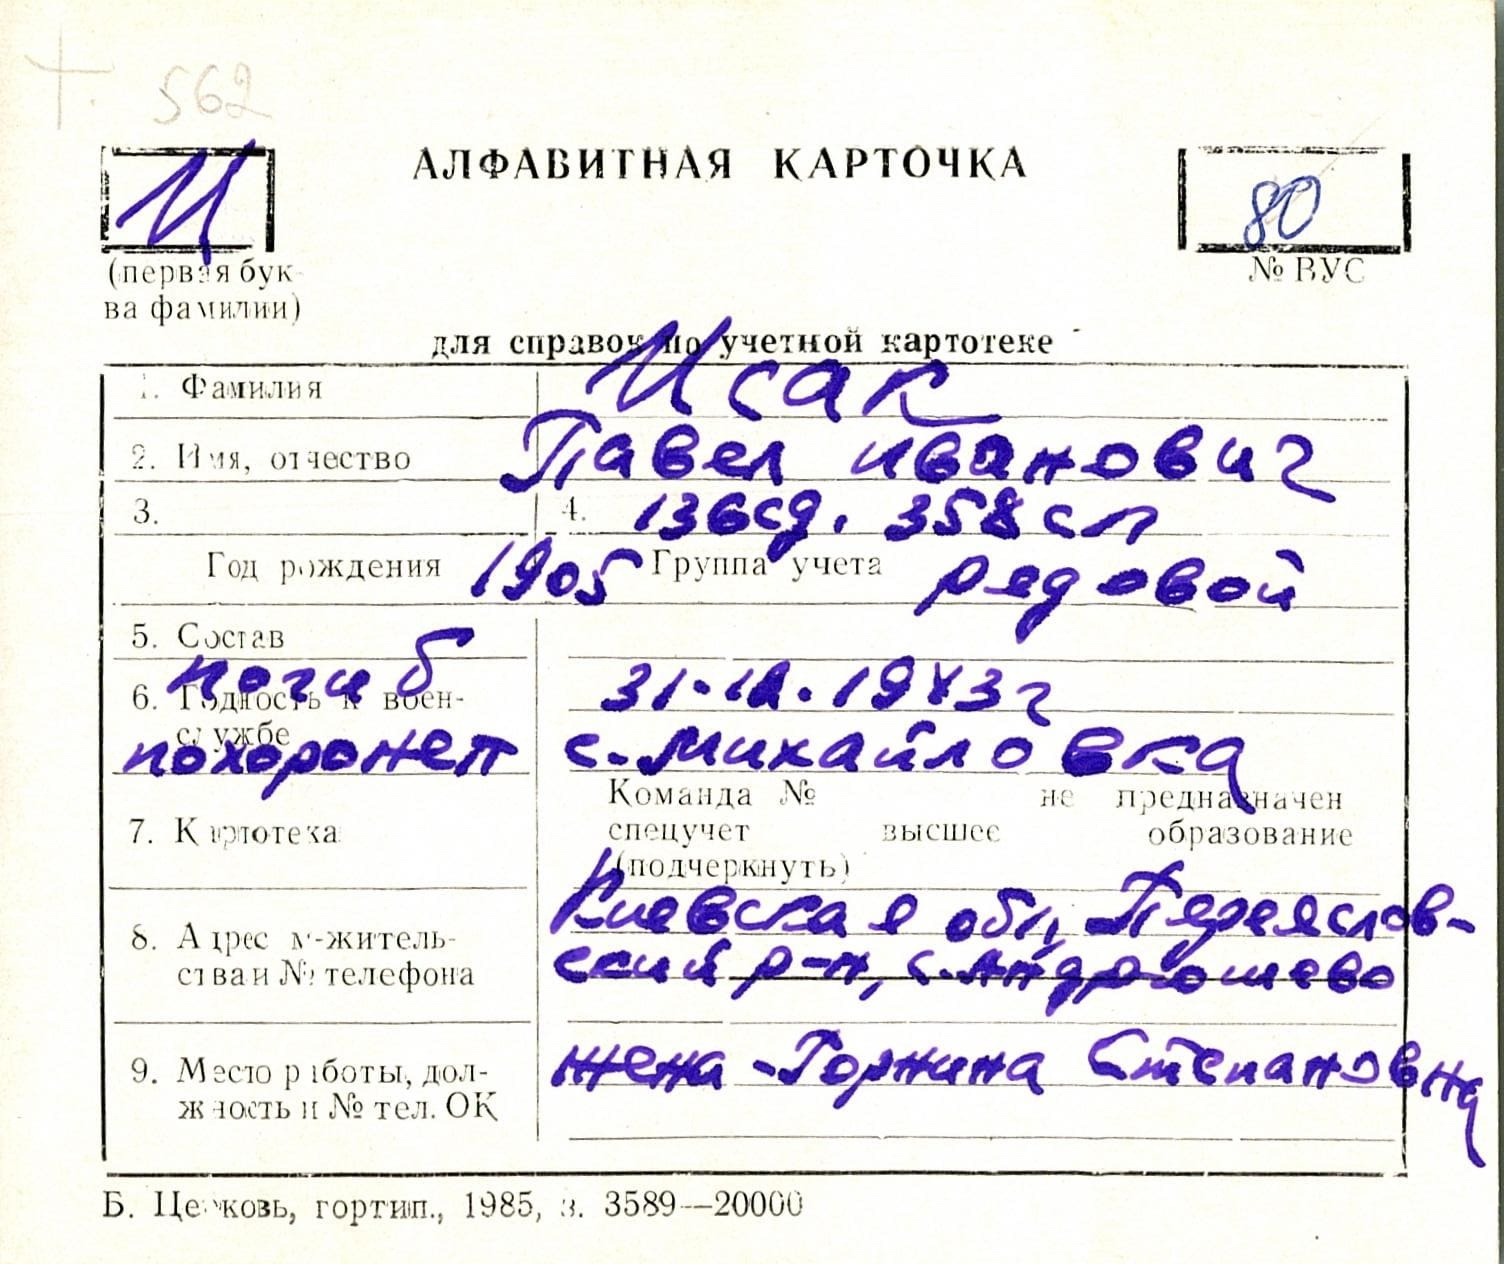 562
И
АЛФАВИТНАЯ КАРТОЧКА
80
(первая бук-
ва фамилии)
№ ВУС
для справок по учетной картотеке
1. Фамилия Исак
2. Имя, отчество Павел Иванович
3. 4. 136сд. 358 сп
Год рождения 1905 Группа учета рядовой
5. Состав
погиб 31. .1943г
6. Годность к воен-
службе
похоронен с. Михайловка
Команда № не предназначен
7. Картотека спецучет высшее образование
(подчеркнуть)
Киевская обл, Переяслов-
8. Адрес м-житель-
ства и № телефона
ский р-н, с. Андрюшево
9. Место работы, дол-
жность и № тел. ОК
жена - Горпина Степановна
Б. Церковь, гортип., 1985, з. 3589—20000